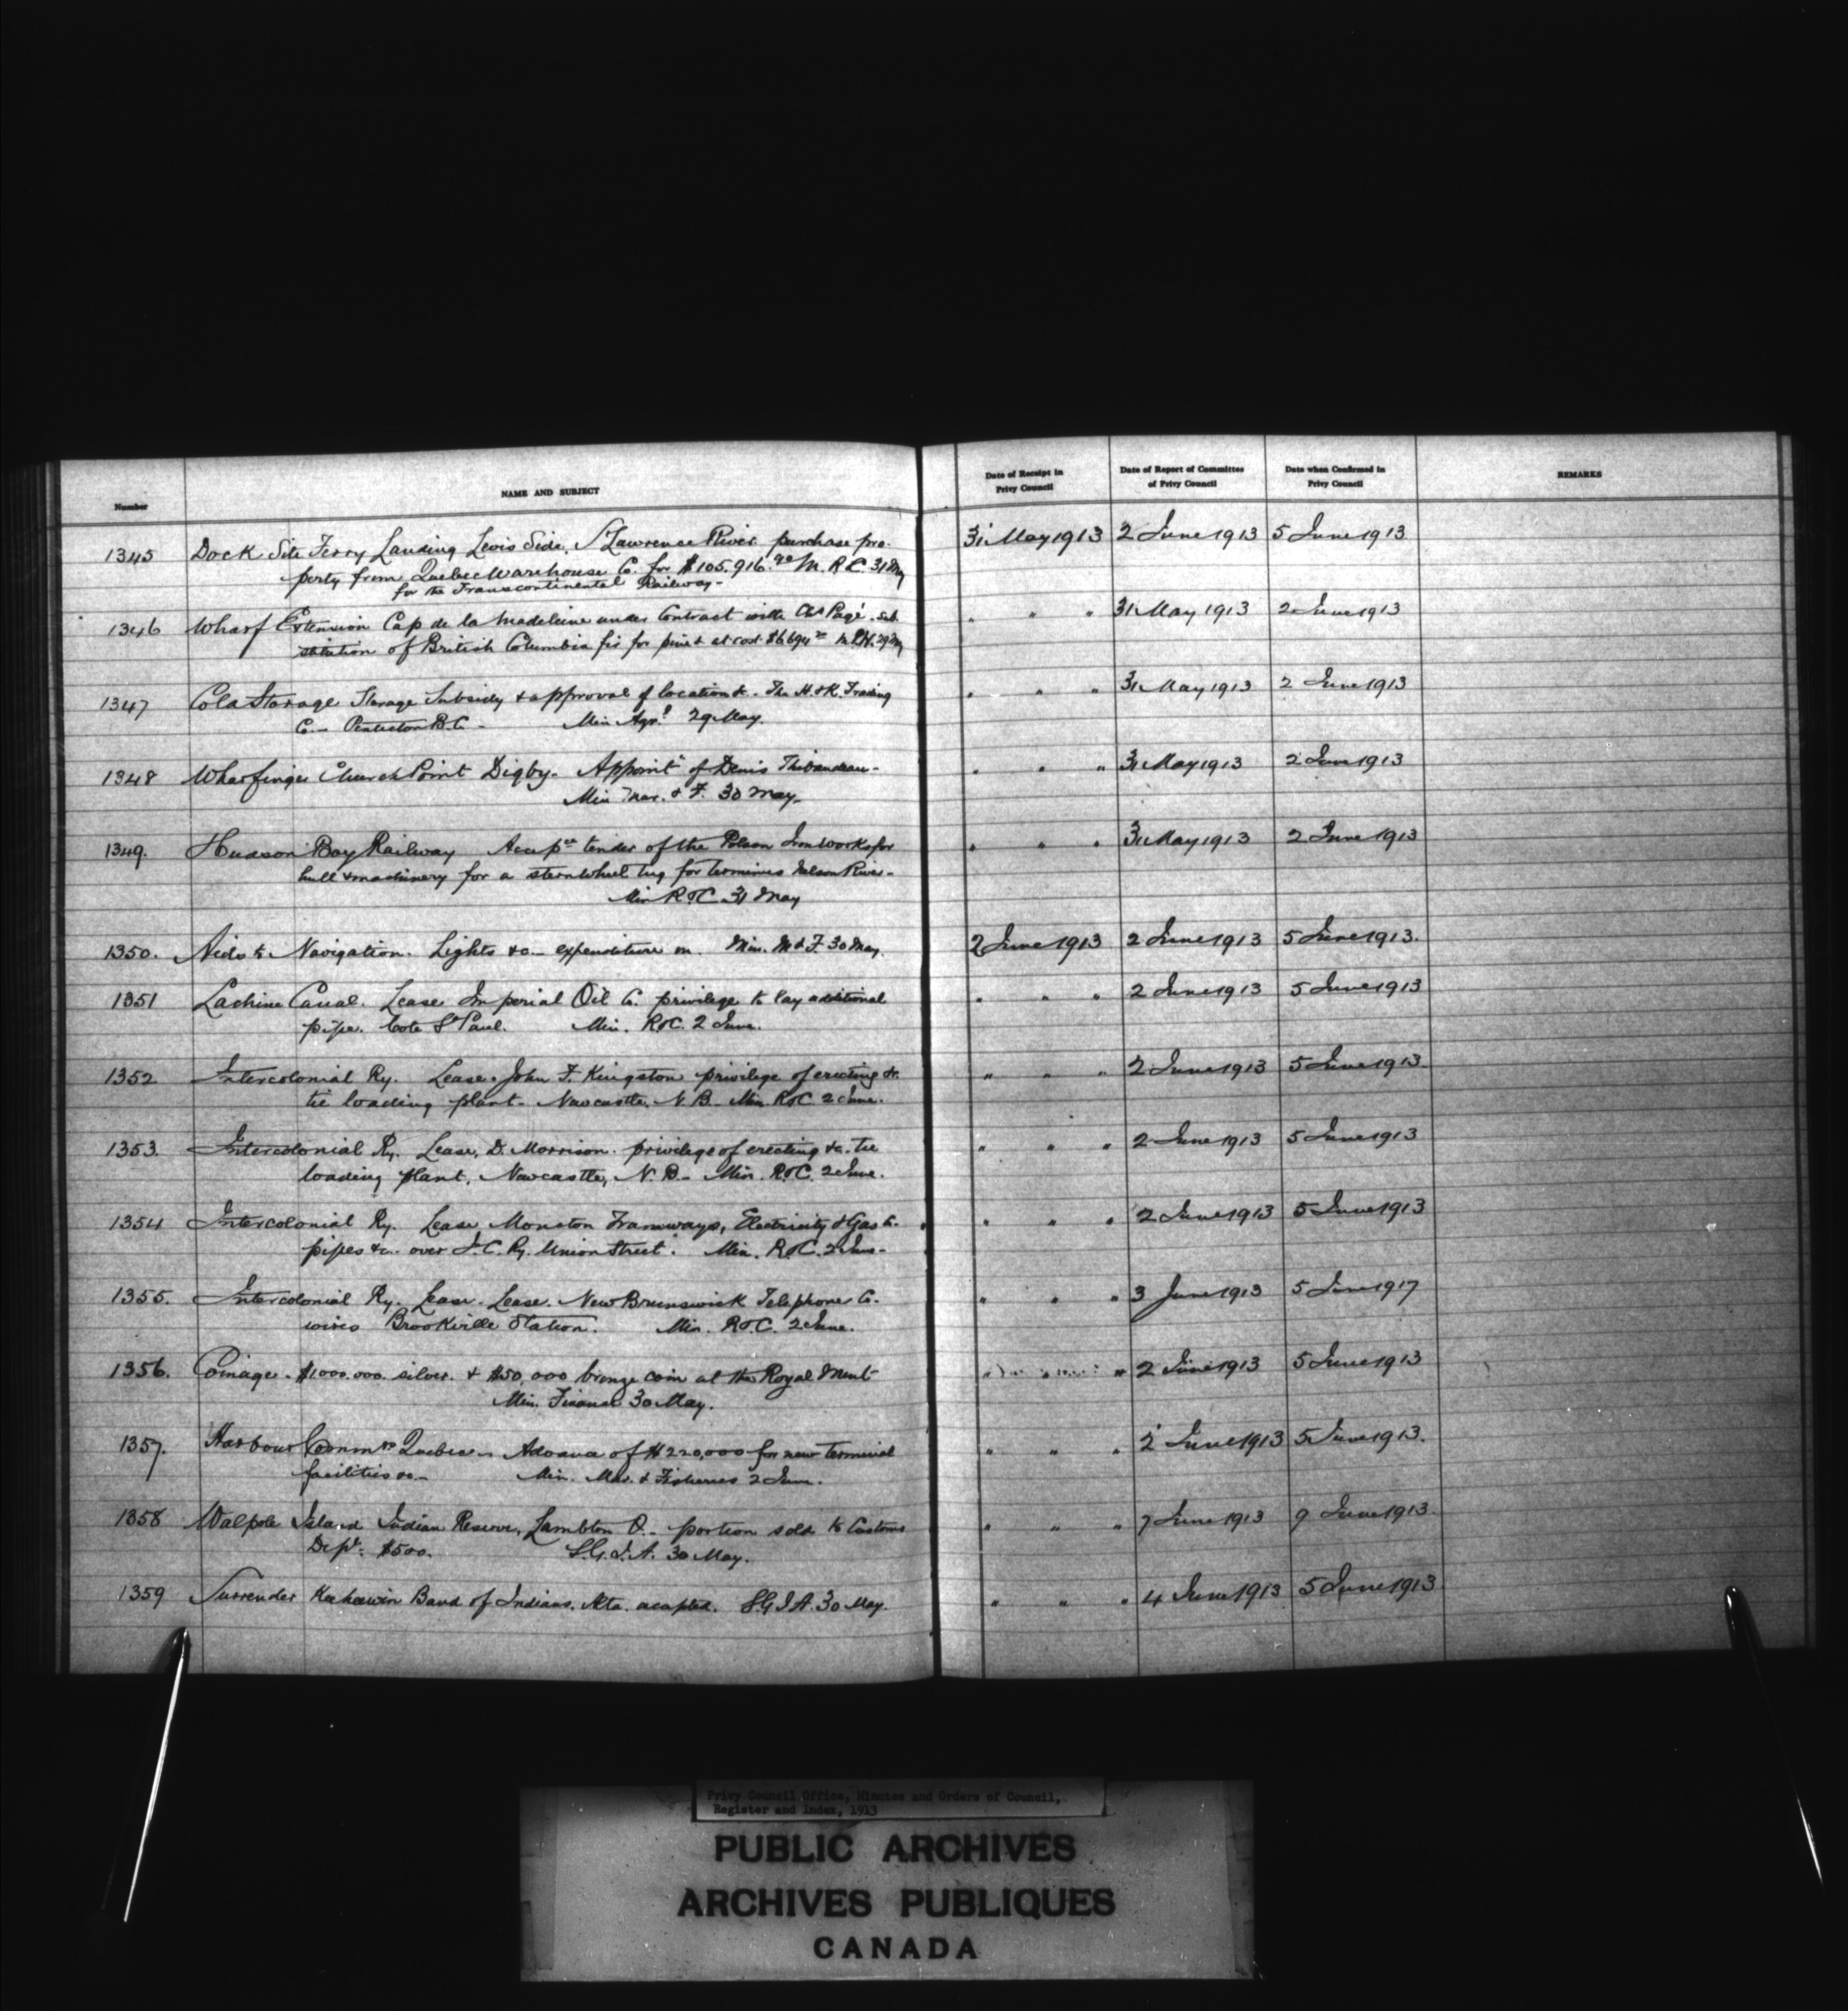 Number NAME AND SUBJECT Date of Receipt in Privy Council Date of Report of Committee of Privy Council Date when Confirmed in Privy Council REMARKS
1345 Dock Site Ferry Landing Levis Side, St Lawrence River purchase pro- 31 May 1913 2 June 1913 5 June 1913
perty from Quebec Warehouse Co. for $105,916.90 M. R C. 31 May
for the Transcontinental Railway -
1346 Wharf Extension Cap de la Madeleine under Contract with Chs Pagé. sub " " " 31 May 1913 2 June 1913
stitution of British Columbia fir for pine & at cost $6694 M.P.W. 29 May
1347 Cold Storage Storage Subsidy & approval of location &. The H & K. Trading " " " 31 May 1913 2 June 1913
Co. - Penticton B.C - Min Agrl 29 May.
1348 Wharfinger Church Point Digby - Appoint of Denis Thibaudeau - " " " 31 May 1913 2 June 1913
Min Mar. & F. 30 May -
1349. Hudson Bay Railway Accpce tender of the Polson Iron Works for " " " 31 May 1913 2 June 1913
hull & machinery for a sternwheel tug for terminus Nelson River -
Min R & C 31 May
1350. Aids to Navigation. Lights &c - expenditure on. Min. M & F 30 May. 2 June 1913 2 June 1913 5 June 1913.
1351 Lachine Canal. Lease Imperial Oil Co. privilege to lay additional " " " 2 June 1913 5 June 1913
pipe. Cote St Paul. Min. R&C. 2 June.
1352 Intercolonial Ry. Lease. John F. Kingston privilege of erecting &c. " " " 2 June 1913 5 June 1913.
tie loading plant - Newcastle, N. B. Min. R&C 2 June.
1353. Intercolonial Ry. Lease, D. Morrison. privilege of erecting &c. tie " " " 2 June 1913 5 June 1913
loading plant, Newcastle, N. B - Min. R&C. 2 June.
1354 Intercolonial Ry. Lease Moncton Tramways, Electricity & Gas Co. " " " 2 June 1913 5 June 1913
pipes &c. over I. C. Ry. Union Street. Min. R&C. 2 June -
1355. Intercolonial Ry. Lease. Lease. New Brunswick Telephone Co. " " " 3 June 1913 5 June 1917
wires Brookville Station. Min. R&C. 2 June.
1356. Coinage. $1,000,000. silver. & $50,000 bronze coin at the Royal Mint " " " 2 June 1913 5 June 1913
Min. Finance 30 May.
1357. Harbour Commrs Quebec - Advance of $220,000 for new terminal " " " 2 June 1913 5 June 1913.
facilities &c - Min. Mar. & Fisheries 2 June.
1358 Walpole Island Indian Reserve, Lambton O. - portion sold to Customs " " " 7 June 1913 9 June 1913.
Dept. $500. S.G.I.A. 30 May.
1359 Surrender Kehewin Band of Indians. Alta. accepted. S.G I A. 30 May. " " " 4 June 1913 5 June 1913.
Privy Council Office, Minutes and Orders of Council,
Register and Index, 1913
PUBLIC ARCHIVES
ARCHIVES PUBLIQUES
CANADA